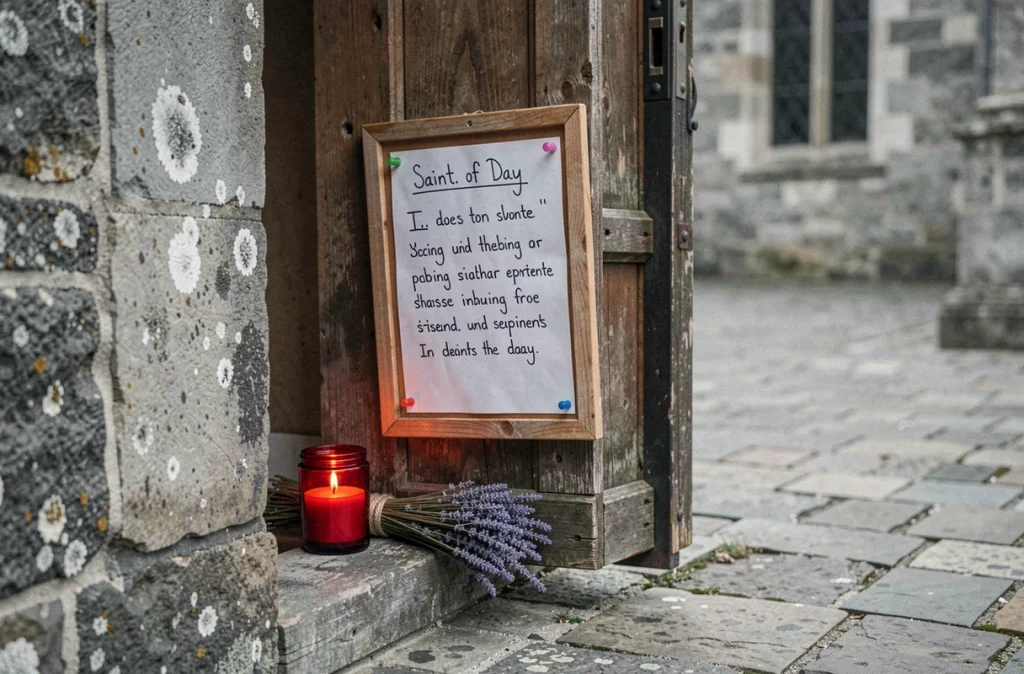 Saint. of Day
I.. does ton slvonte "
Yocing und thebing or
pabing siathar eprntente
shasse inbuing froe
sisend. und sepinents
In deaints the daay.